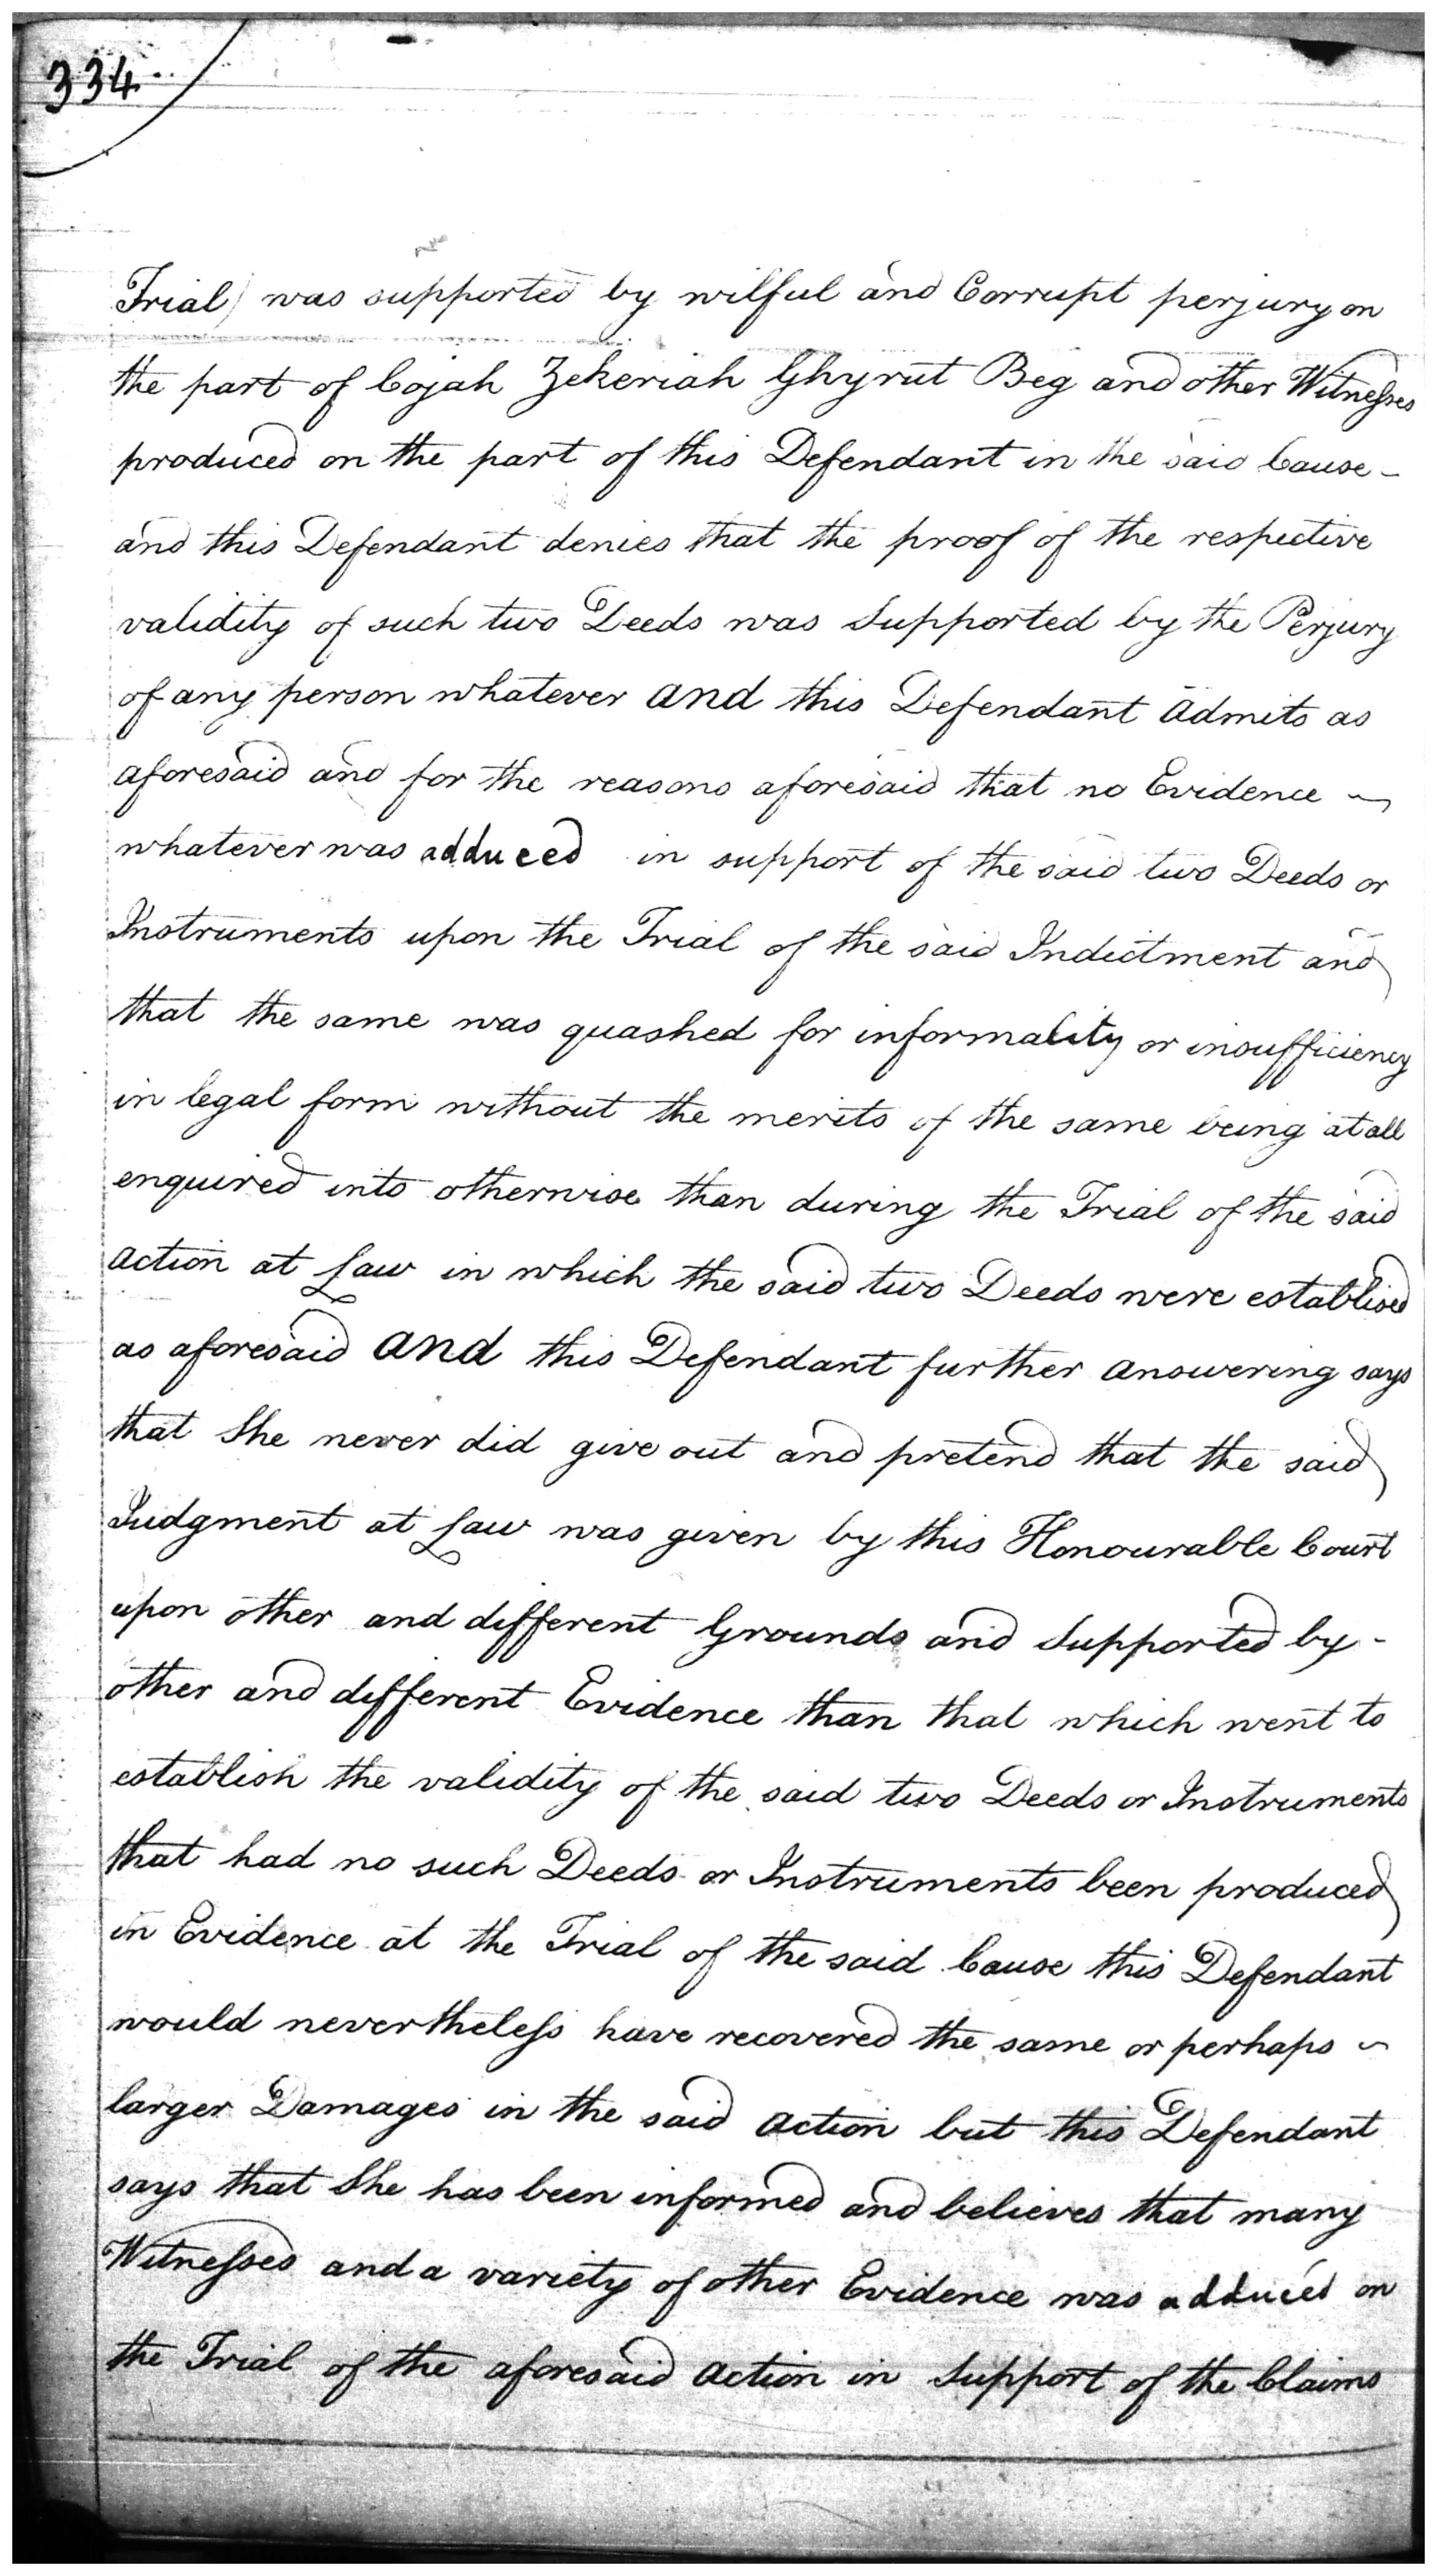 334
Trial) was supported by wilful and Corrupt perjury on
the part of Cojah Zekeriah Ghyrut Beg and other Witnesses
produced on the part of this Defendant in the said Cause -
and this Defendant denies that the proof of the respective
validity of such two Deeds was Supported by the Perjury
of any person whatever and this Defendant Admits as
aforesaid and for the reasons aforesaid that no Evidence ~
whatever was adduced in support of the said two Deeds or
Instruments upon the Trial of the said Indictment and
that the same was quashed for informality or insufficiency
in legal form without the merits of the same being at all
enquired into otherwise than during the Trial of the said
Action at Law in which the said two Deeds were establised
as aforesaid and this Defendant further Answering says
that She never did give out and pretend that the said
Judgment at Law was given by this Honourable Court
upon other and different Grounds and Supported by -
other and different Evidence than that which went to
establish the validity of the said two Deeds or Instruments
that had no such Deeds or Instruments been produced
in Evidence at the Trial of the said Cause this Defendant
would nevertheless have recovered the same or perhaps ~
larger Damages in the said Action but this Defendant
says that She has been informed and believes that many
Witnesses and a variety of other Evidence was adduced on
the Trial of the aforesaid Action in Support of the Claims